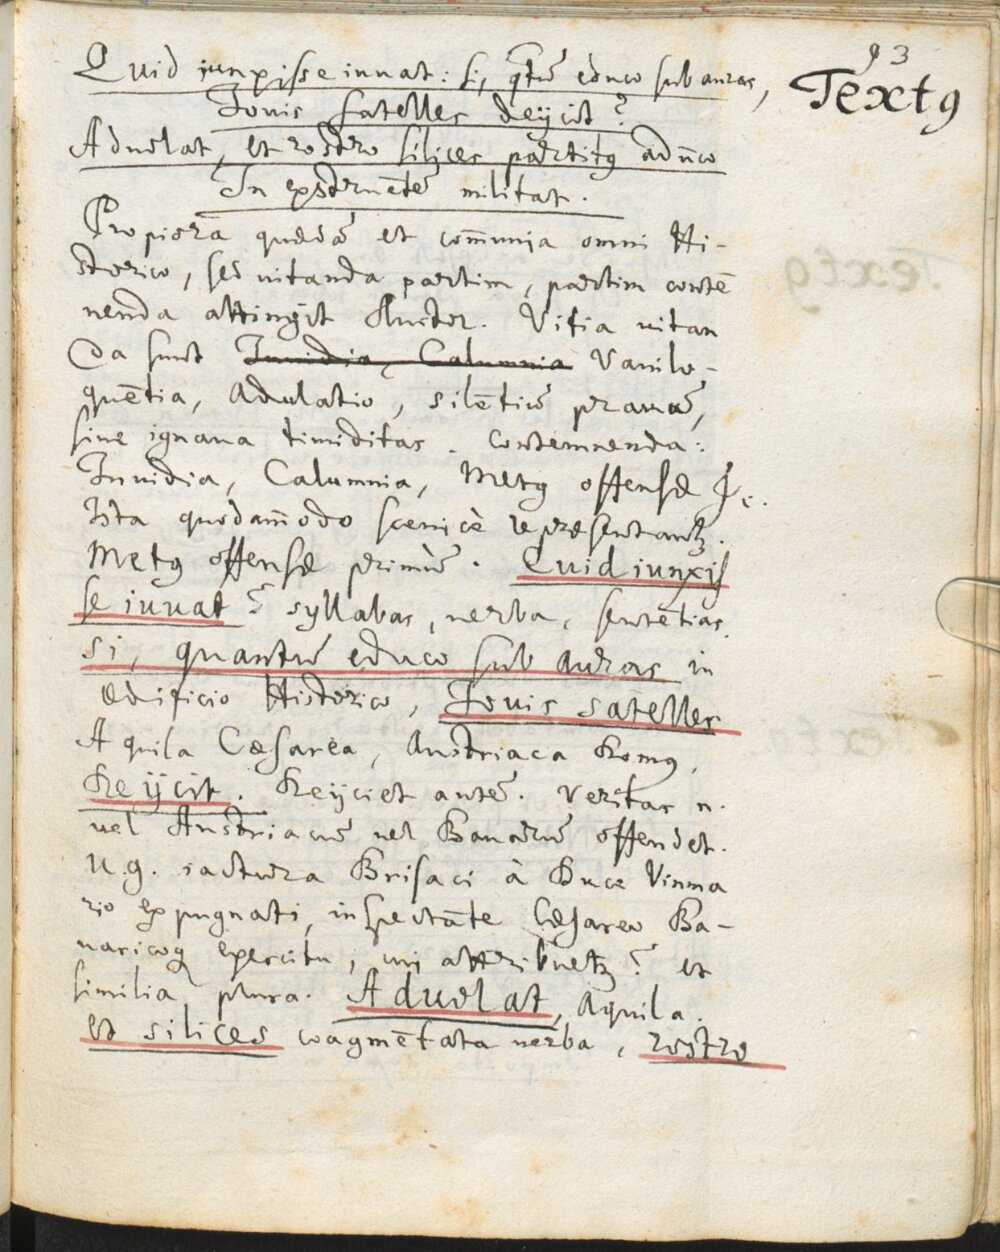 93
Quid iunxisse iuuat: si, qtũ educo sub auras,
Textꝯ
Iouis satelles deijcit?
Aduolat, et rostro silices partitꝯ adũco
In exstruẽtẽ militat.
Propiora quædã et com̃unia omni Hi-
storico, sed uitanda partim, partim contẽ
nenda attingit Auctor. Vitia uitan
da sunt Inuidia, Calumnia Vanilo-
quẽtia, Adulatio, silẽtiũ prauũ,
siue ignaua timiditas. Contemnenda:
Inuidia, Calumnia, Metꝯ offensæ
Ista quodam̃odo scenicè repræsentantꝛ.
Metꝯ offensæ primũ. Quid iunxis
se iuuat? syllabas, uerba, sentẽtias.
si, quantũ educo sub auras in
ædificio Historico, Iouis satelles
Aquila Cæsarea, Austriaca Domꝯ,
Reijcit. Reijciet autẽ. Veritas n.
uel Austriacũ uel Bauarũ offendet.
U.g. iactura Brisaci à Duce Vinma
rio expugnati, inspectãte Cæsareo Ba-
uaricoq exercitu, cui attribuetꝛ? et
similia plura. Aduolat, Aquila.
et silices coagmẽtata uerba, rostro